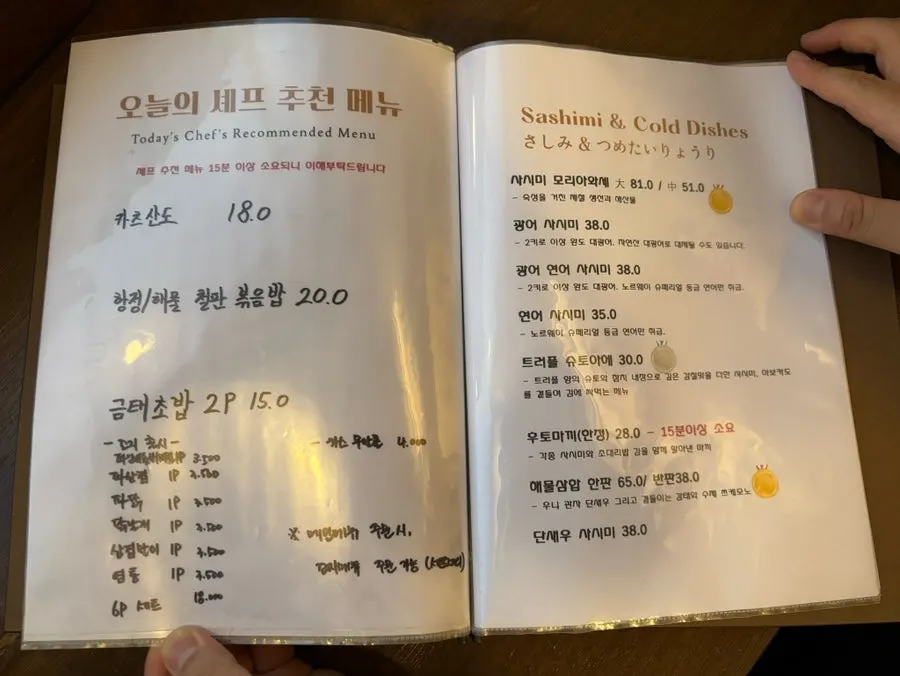 오늘의 셰프 추천 메뉴
Today's Chef's Recommended Menu
셰프 추천 메뉴 15분 이상 소요되니 이해부탁드립니다
카츠산도 18.0
항정/해물 철판 볶음밥 20.0
금태초밥 2P 15.0
1P 3.500
1P 3.500
1P 3.500
1P 3.500
삼겹말이 1P 3.500
염통 1P 3.500
6P 세트 18.000
4.000
※ 주문시,
주문 가능
Sashimi & Cold Dishes
さしみ & つめたいりょうり
사시미 모리아와세 大 81.0 / 中 51.0
- 숙성을 거친 제철 생선과 해산물
광어 사시미 38.0
- 2키로 이상 완도 대광어. 자연산 대광어로 대체될 수도 있습니다.
광어 연어 사시미 38.0
- 2키로 이상 완도 대광어. 노르웨이 슈페리얼 등급 연어만 취급.
연어 사시미 35.0
- 노르웨이 슈페리얼 등급 연어만 취급.
트러플 슈토아에 30.0
- 트러플 향의 슈토와 참치 내장으로 깊은 감칠맛을 더한 사시미, 아보카도
를 곁들여 김에 싸먹는 메뉴
후토마끼(한정) 28.0 - 15분이상 소요
- 각종 사시미와 초대리밥 김을 함께 말아낸 마끼
해물삼합 한판 65.0/ 반판38.0
- 우니 관자 단새우 그리고 곁들이는 감태와 수제 쯔케모노
단새우 사시미 38.0